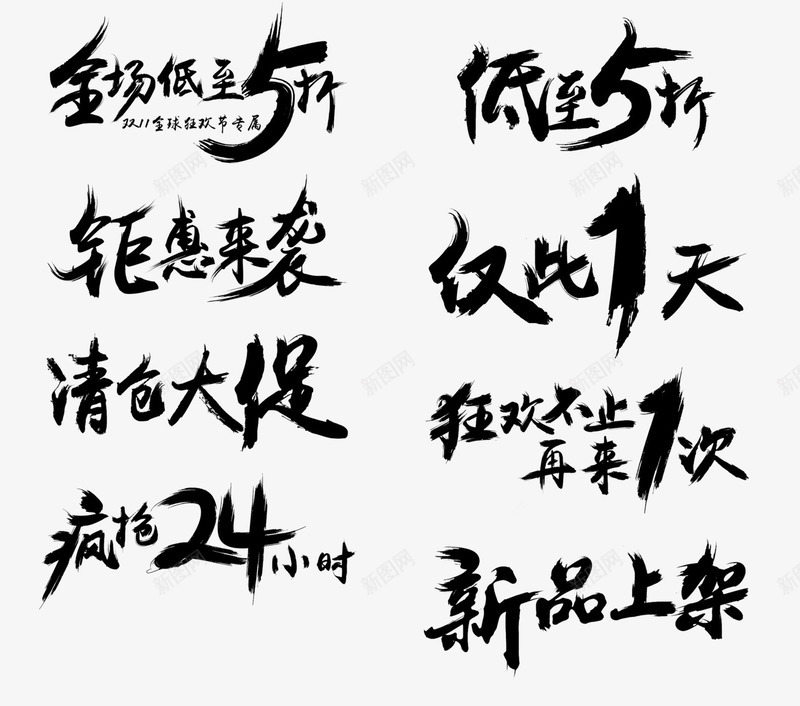 全场低至5折
双11全球狂欢节专属
钜惠来袭
清仓大促
疯抢24小时
低至5折
仅此1天
狂欢不止
再来1次
新品上架
新图网